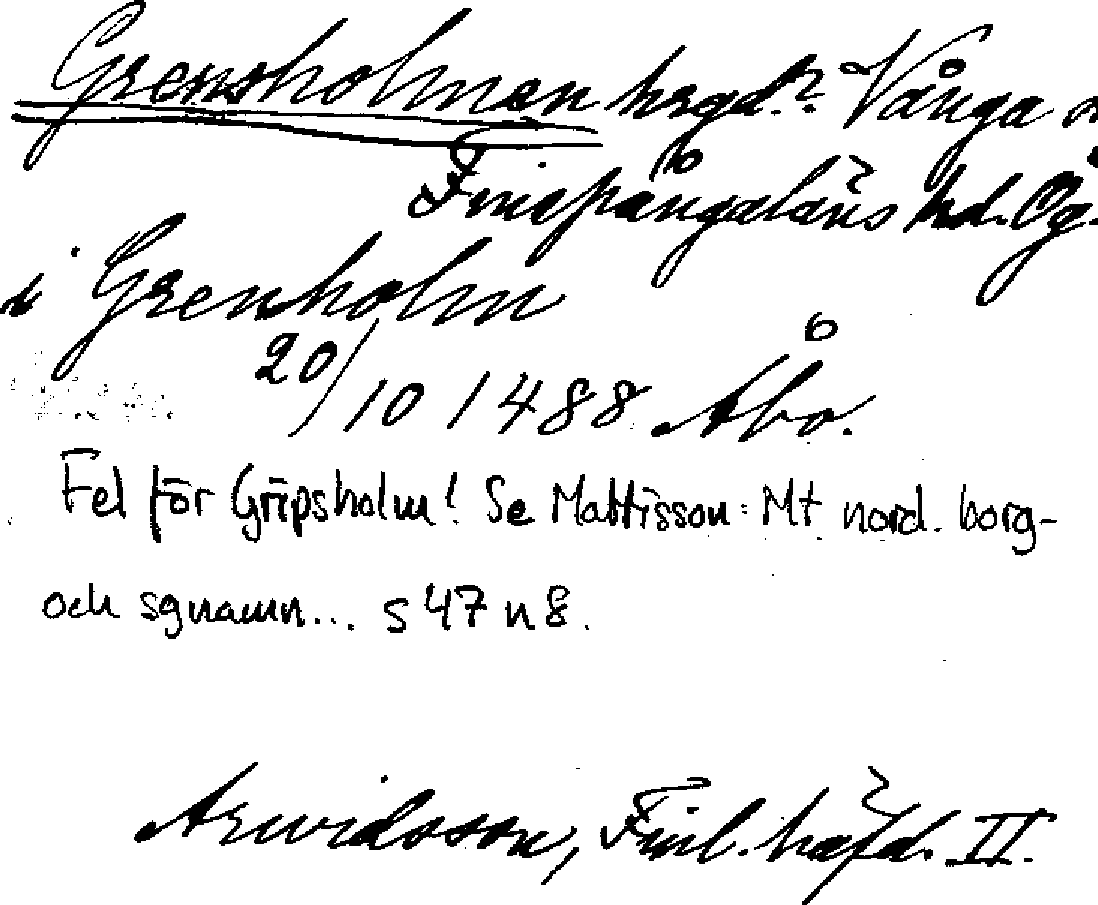 Grensholmen hrgd.? Vånga
Finspångaläns hd. Ög.
i Grenholm
20/10 1488 Åbo.
Fel för Gripsholm! Se Mattisson: Mt nord. borg-
och sgnamn... s 47 n 8.
Arwidsson, Finl. häfd. II.